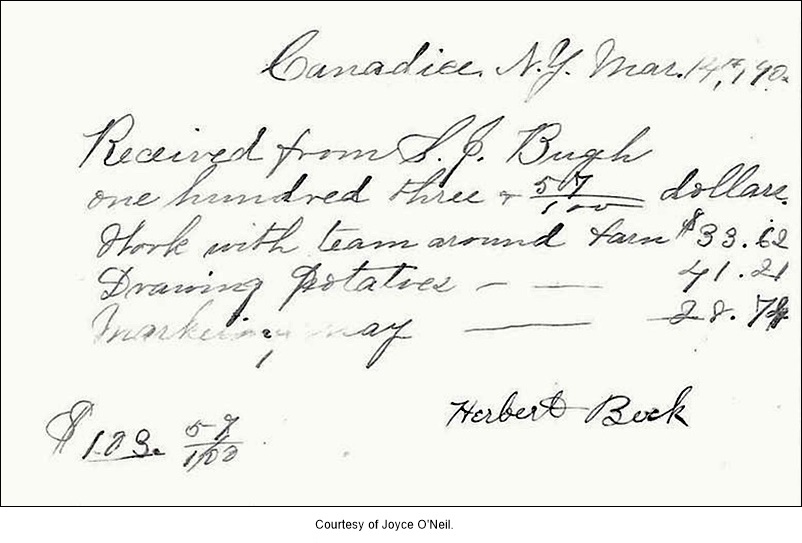 Canadice. N.Y. Mar. 14th, 190
Received from S. J. Bugh
one hundred three + 57/100 dollars.
Work with team around farm $33.62
Drawing potatoes — — 41.21
Marketing hay — 28.74
Herbert Beck
$103. 57/100
Courtesy of Joyce O'Neil.